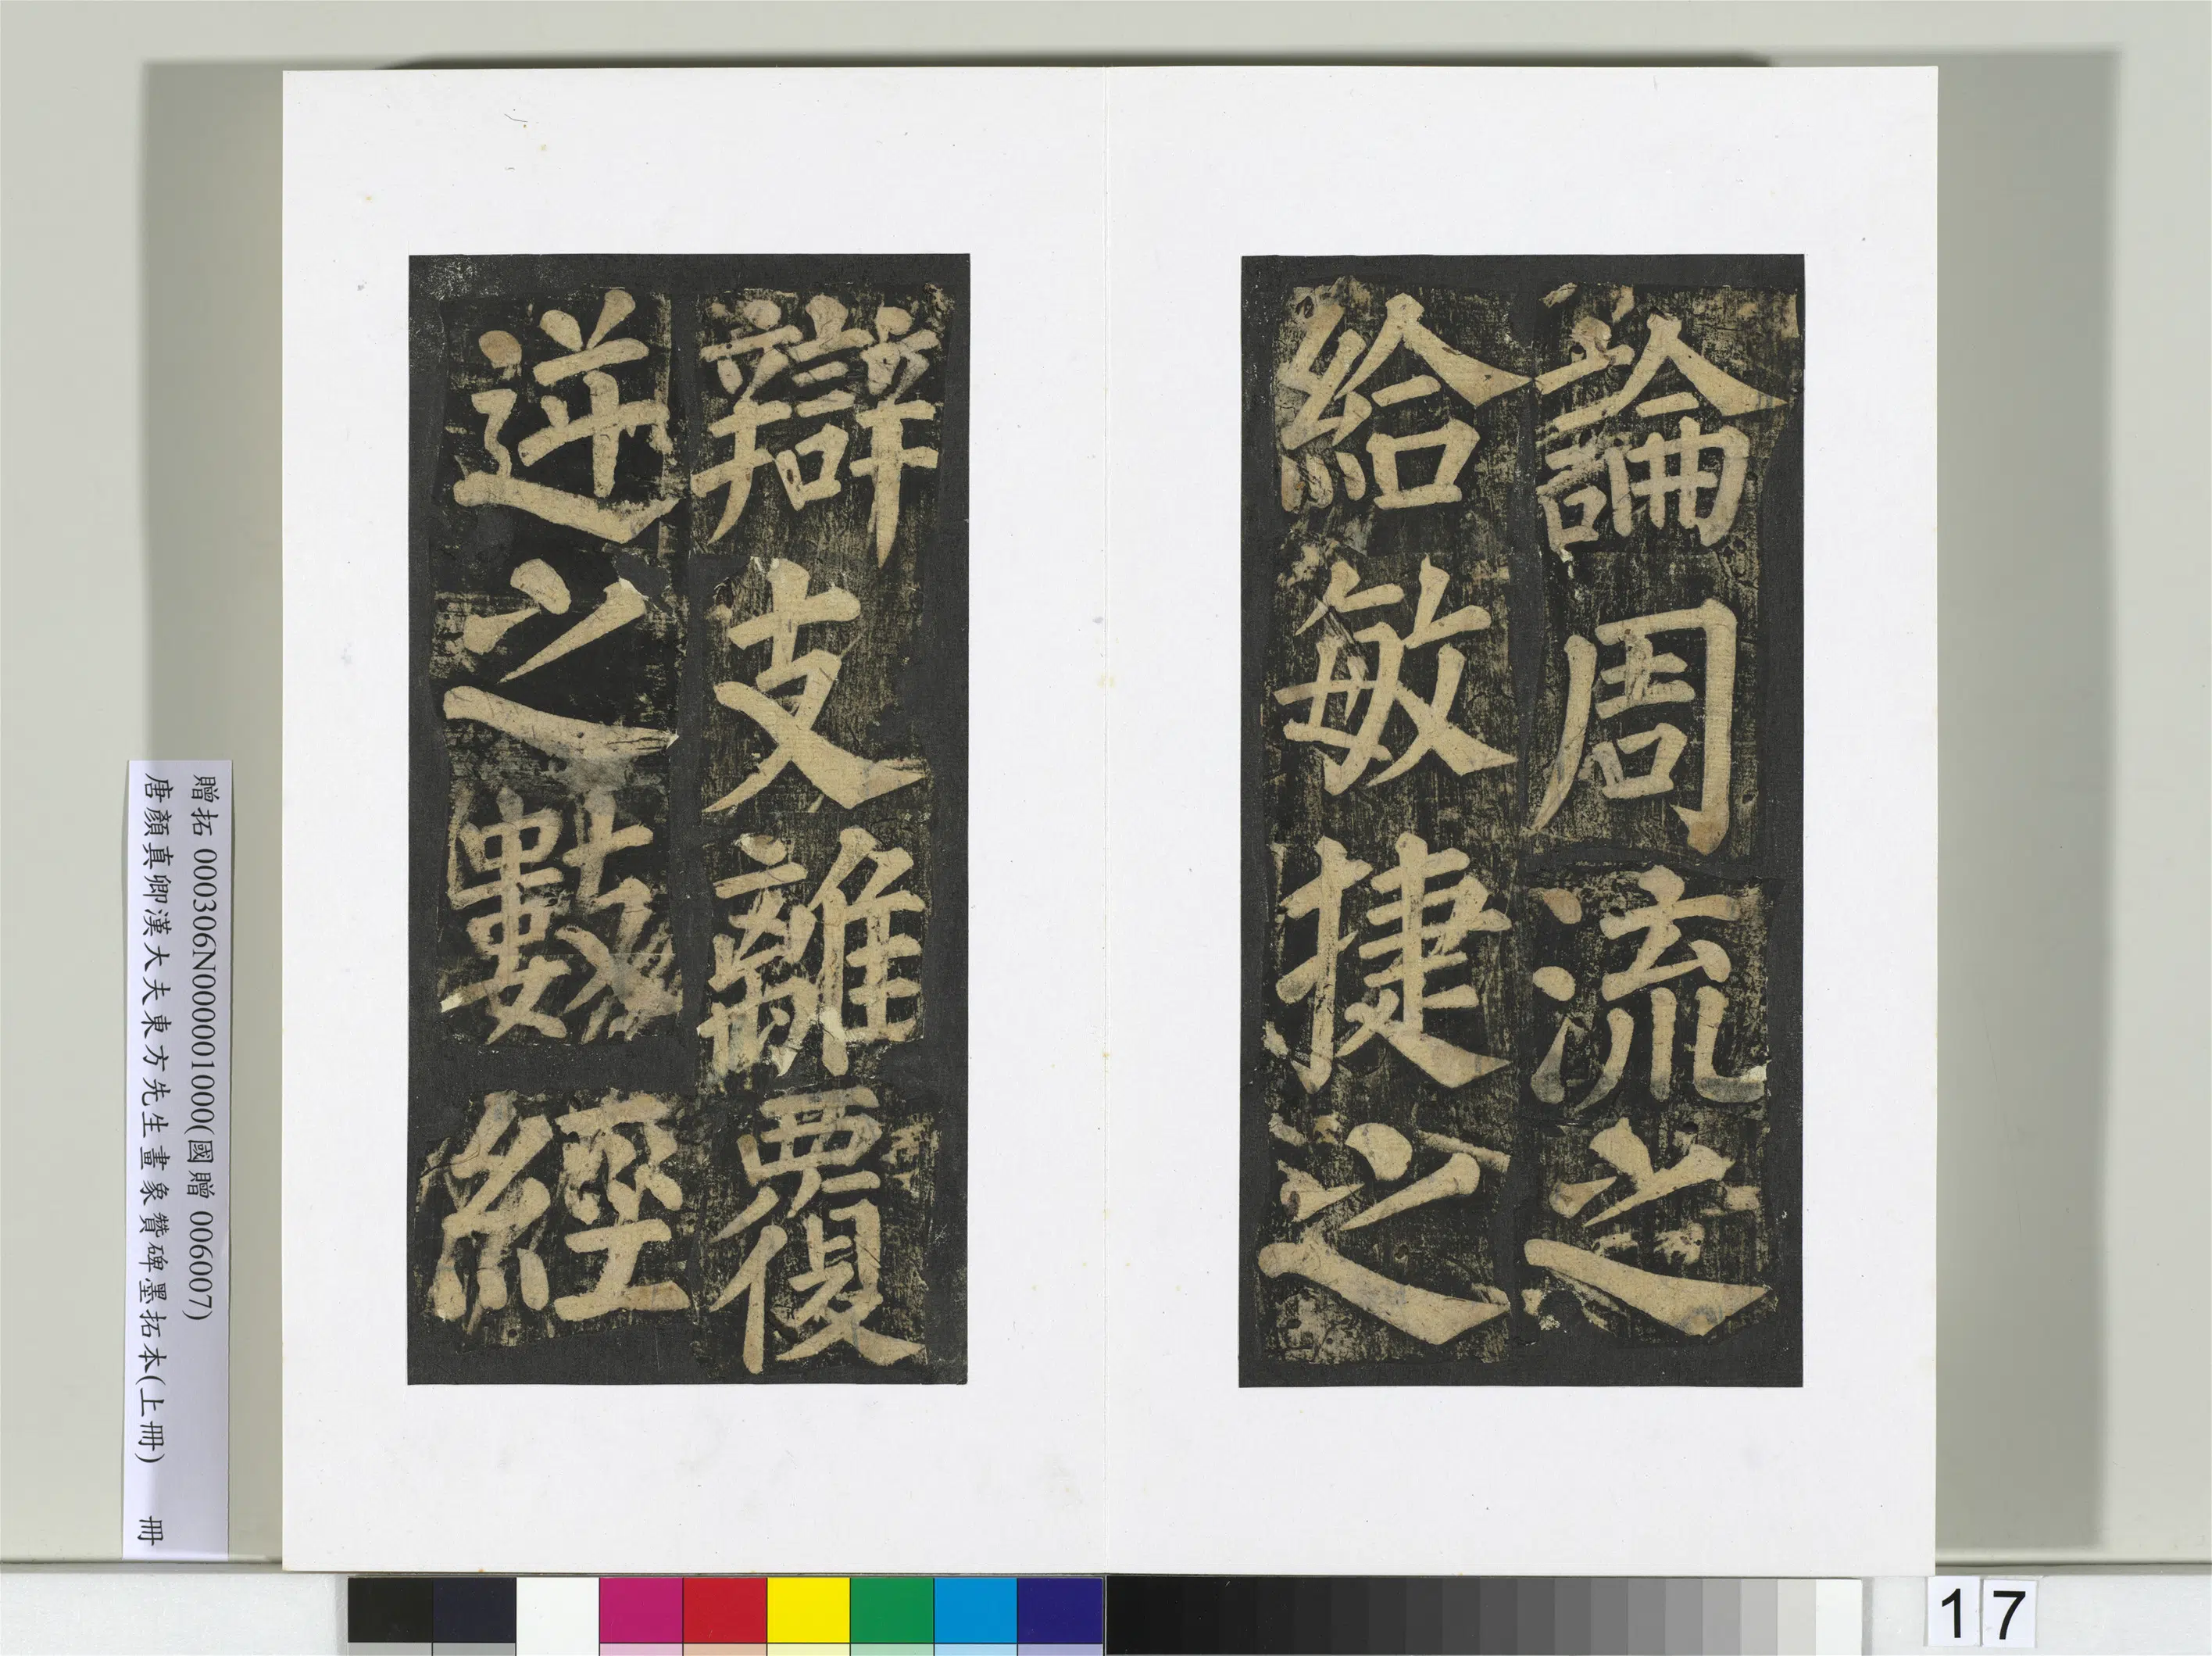 論周流之
給敏捷之
辯支離覆
逆之數經
贈拓 000306N000001000(國贈 006007)
唐顏真卿漢大夫東方先生畫象贊碑墨拓本(上冊) 冊
17